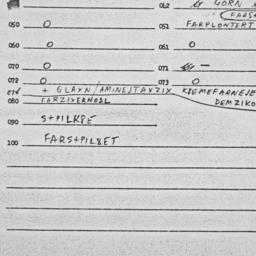 062 GORN
FARS
050 0 051 FARPLONTERT
060 0 061 0
070 0 071 —
072 0 073 0
+ GLAYN/AMINEJTAVZIX KREMEFARNEJE
080 FARZIVERNOSL DEMZIKO
090 S+PILKPE
100 FARS+PILBET